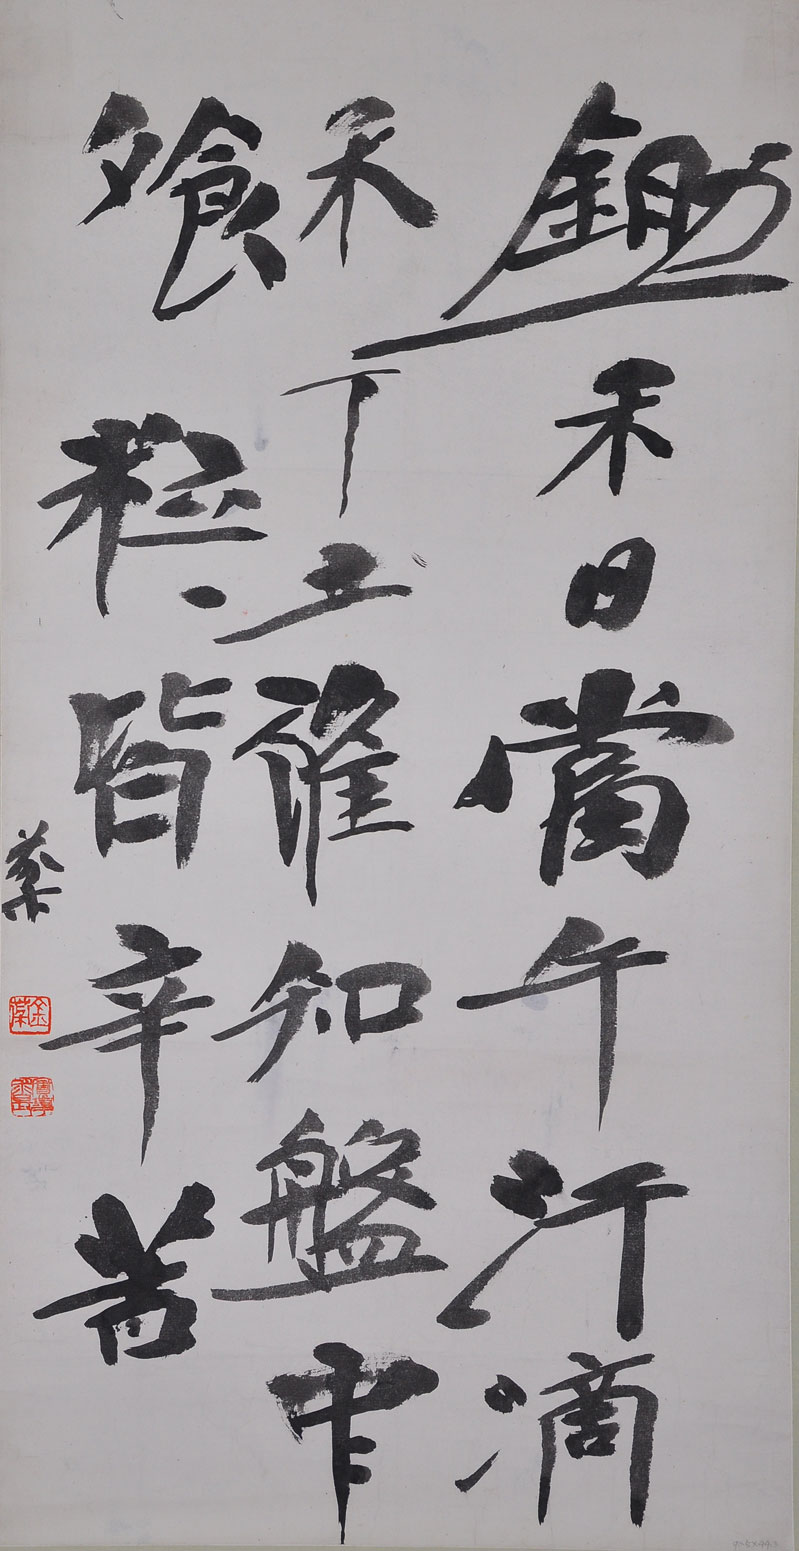 鋤禾日當午汗滴
禾下土誰知盤中
飧粒、皆辛苦